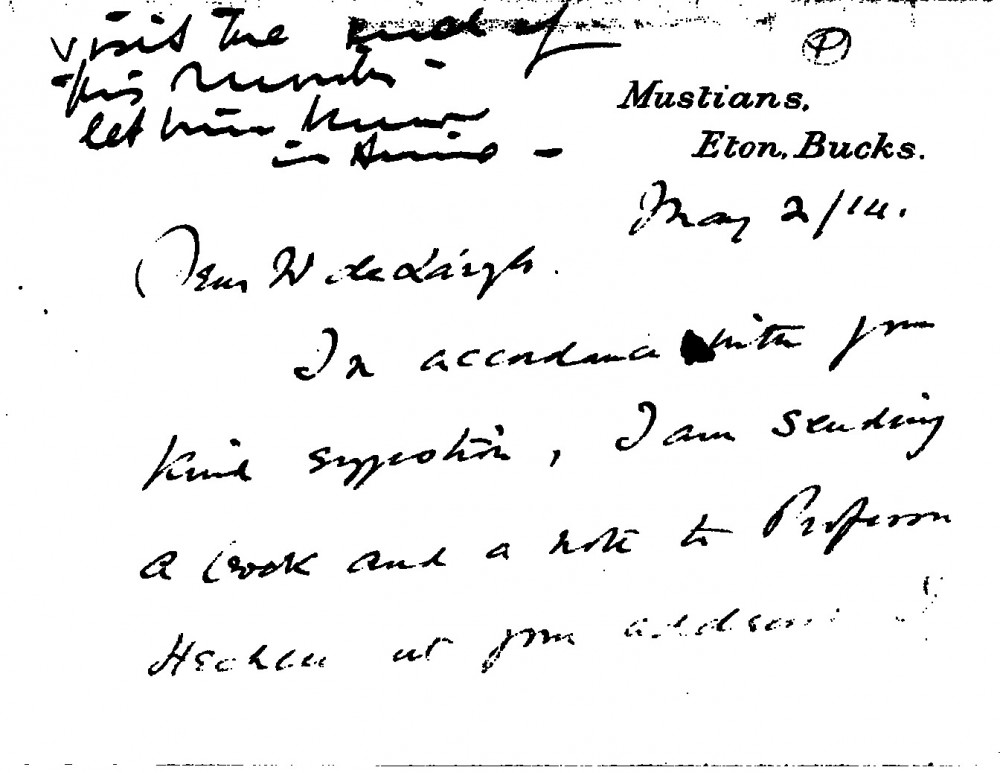 visit the end of
this month -
let him know
in time -
P
Mustians,
Eton, Bucks.
May 2/14.
Dear
In accordance with your
kind suggestion, I am sending
a book and a note to Professor
at your address. I